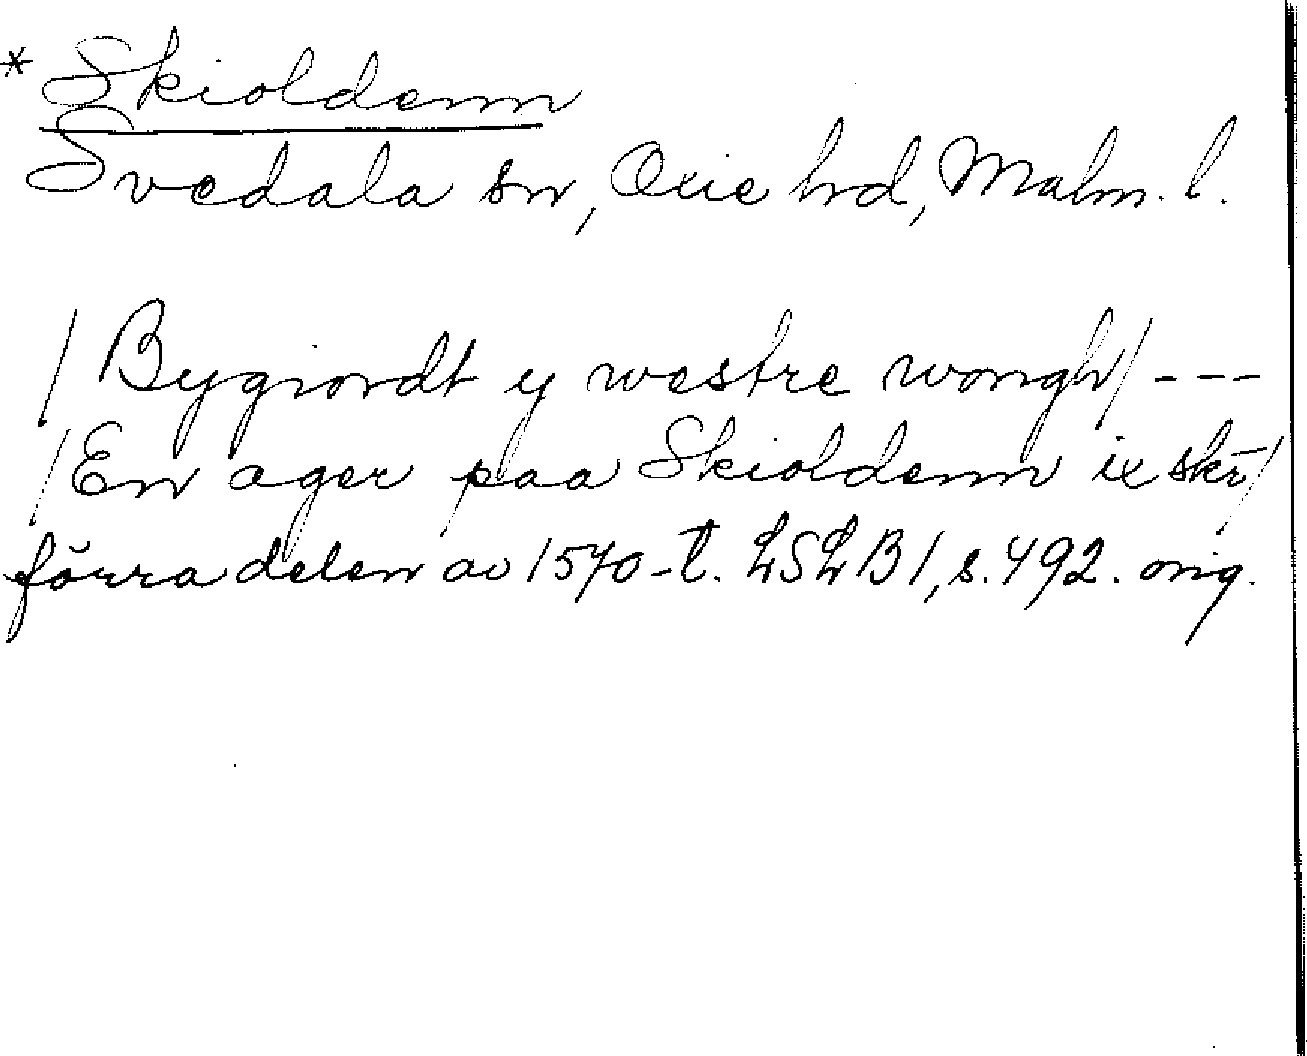 * Skioldenn
Svedala sn, Oxie hd, Malm. l.
/Bygiordt y westre wongh/ ---
/En ager paa Skioldenn ix sk̄/
förra delen av 1570-t. LSLB1, s. 492. orig.